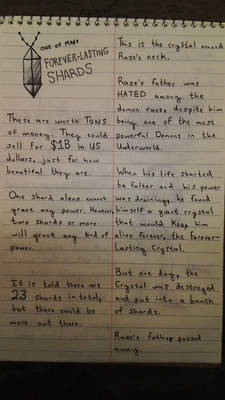 ONE OF MANY
FOREVER-LASTING
SHARDS
These are worth TONS
of money. They could
sell for $1B in US
dollars, just for how
beautiful they are.
One shard alone cannot
grant any power. However,
two shards or more
will grant any kind of
power.
It is told there are
23 shards in total,
but there could be
more out there.
This is the crystal around
Raze's neck.
Raze's father was
HATED among the
demon race, despite him
being one of the most
powerful Demons in the
Underworld.
When his life started
to falter and his power
was draining, he found
himself a giant crystal
that would keep him
alive forever, the Forever-
Lasting Crystal.
But one day, the
Crystal was destroyed
and put into a bunch
of shards.
Raze's father passed
away.